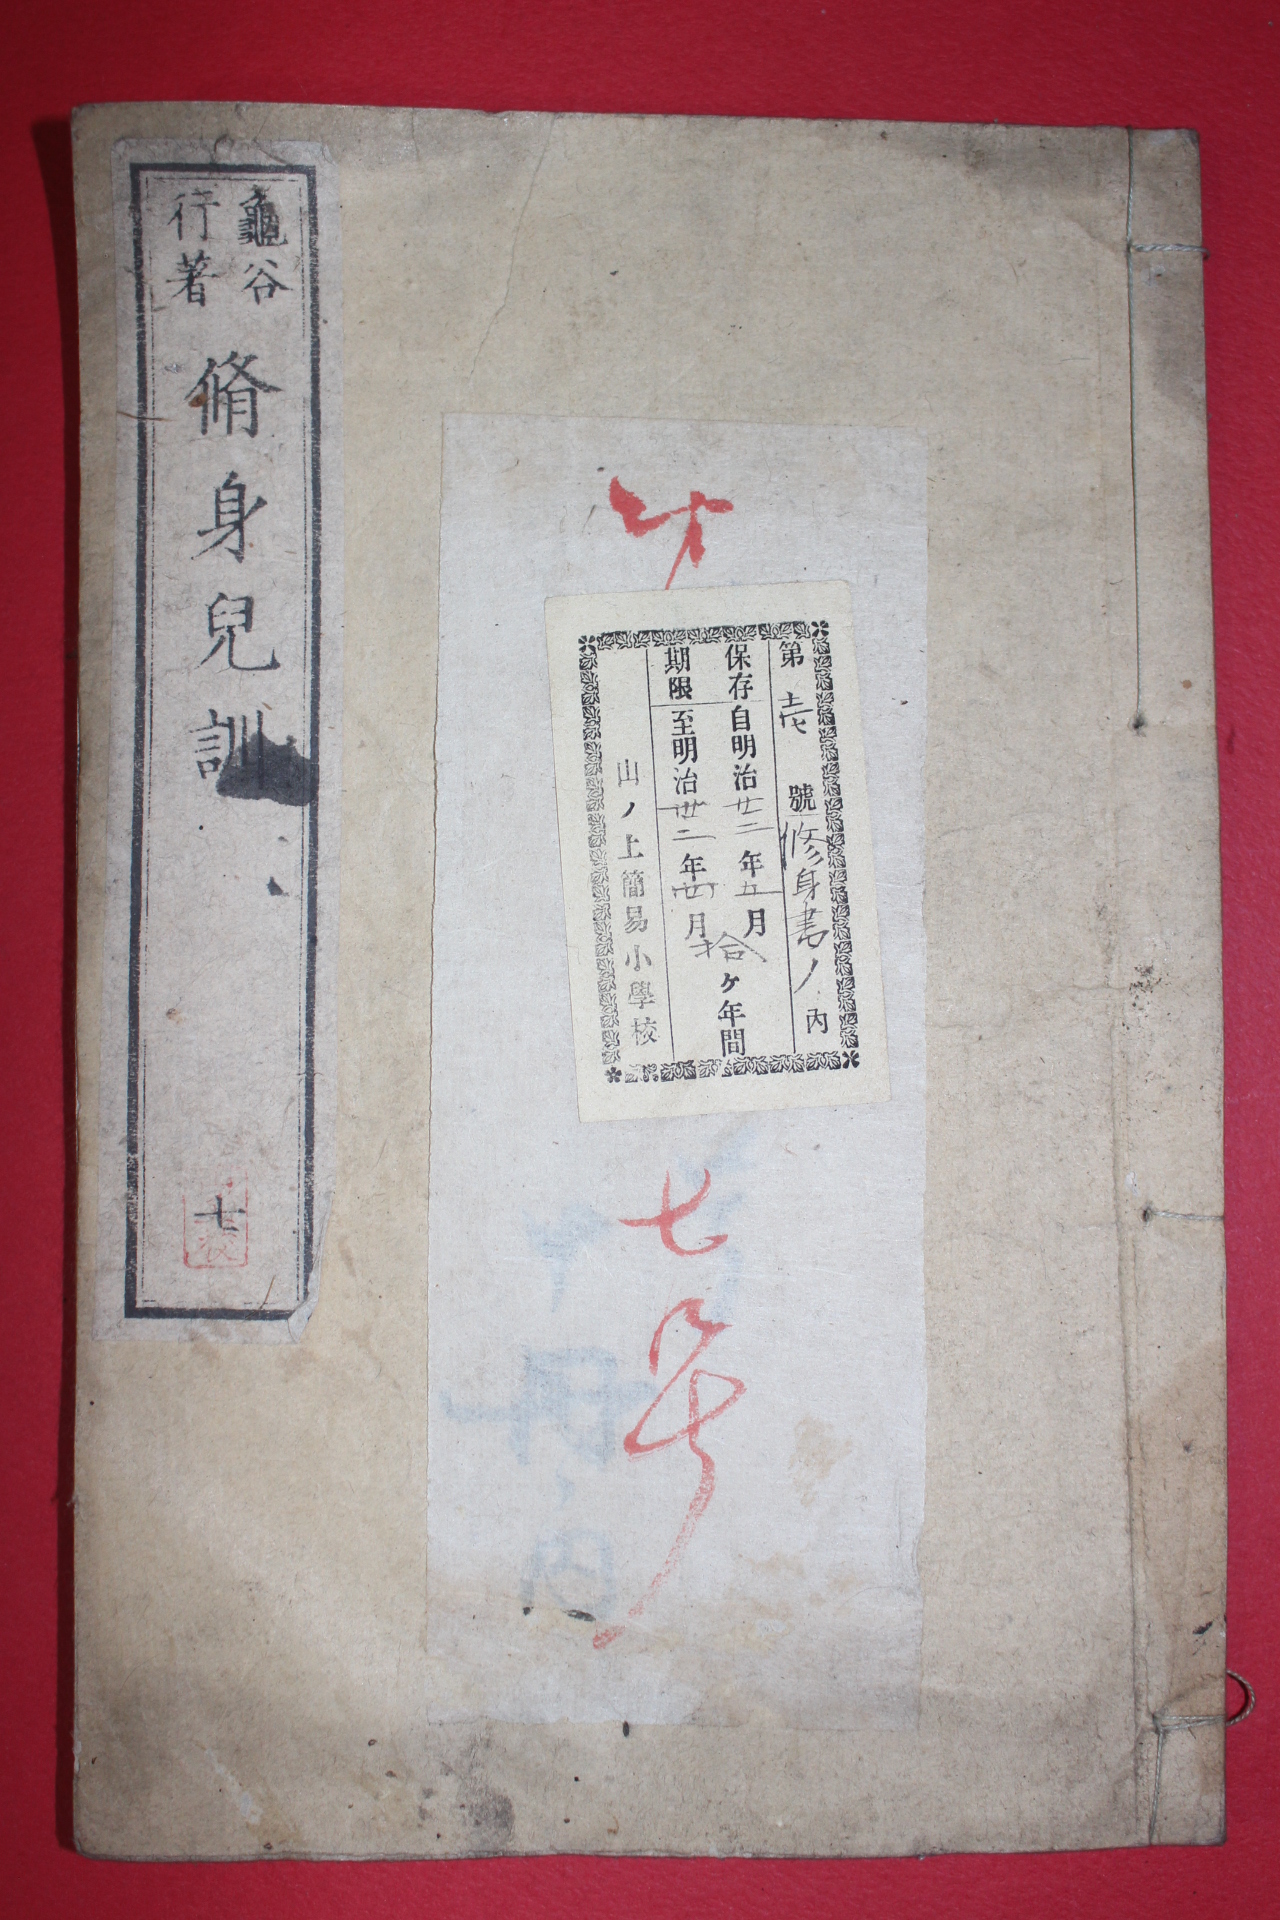 第壱號修身書ノ内
保存自明治廿三年五月
期限至明治卅二年四月
拾ヶ年間
山ノ上簡易小學校
七号
龜谷
行著
脩身兒訓
七